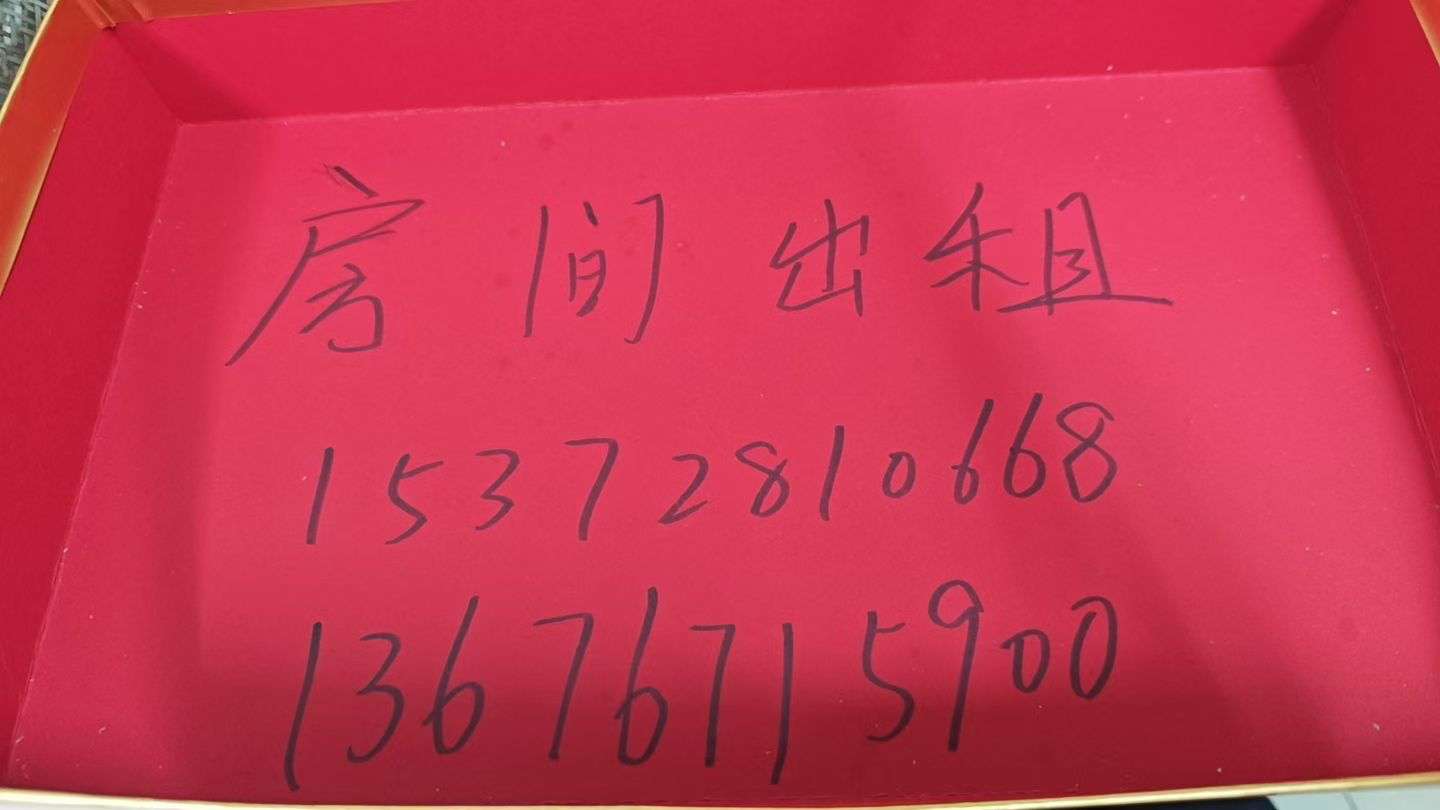 房间出租
15372810668
13676715900